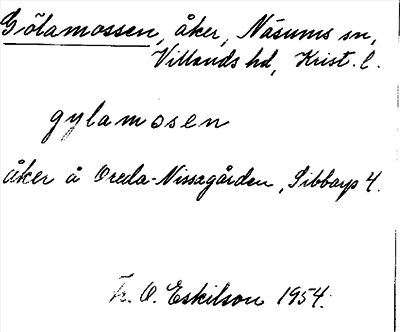 Gölamossen, åker, Näsums sn,
Villands hd, Krist. l.
gylamosen
åker å Oreda-Nissagården, Sibbarp 4.
Fr. O. Eskilson 1954.